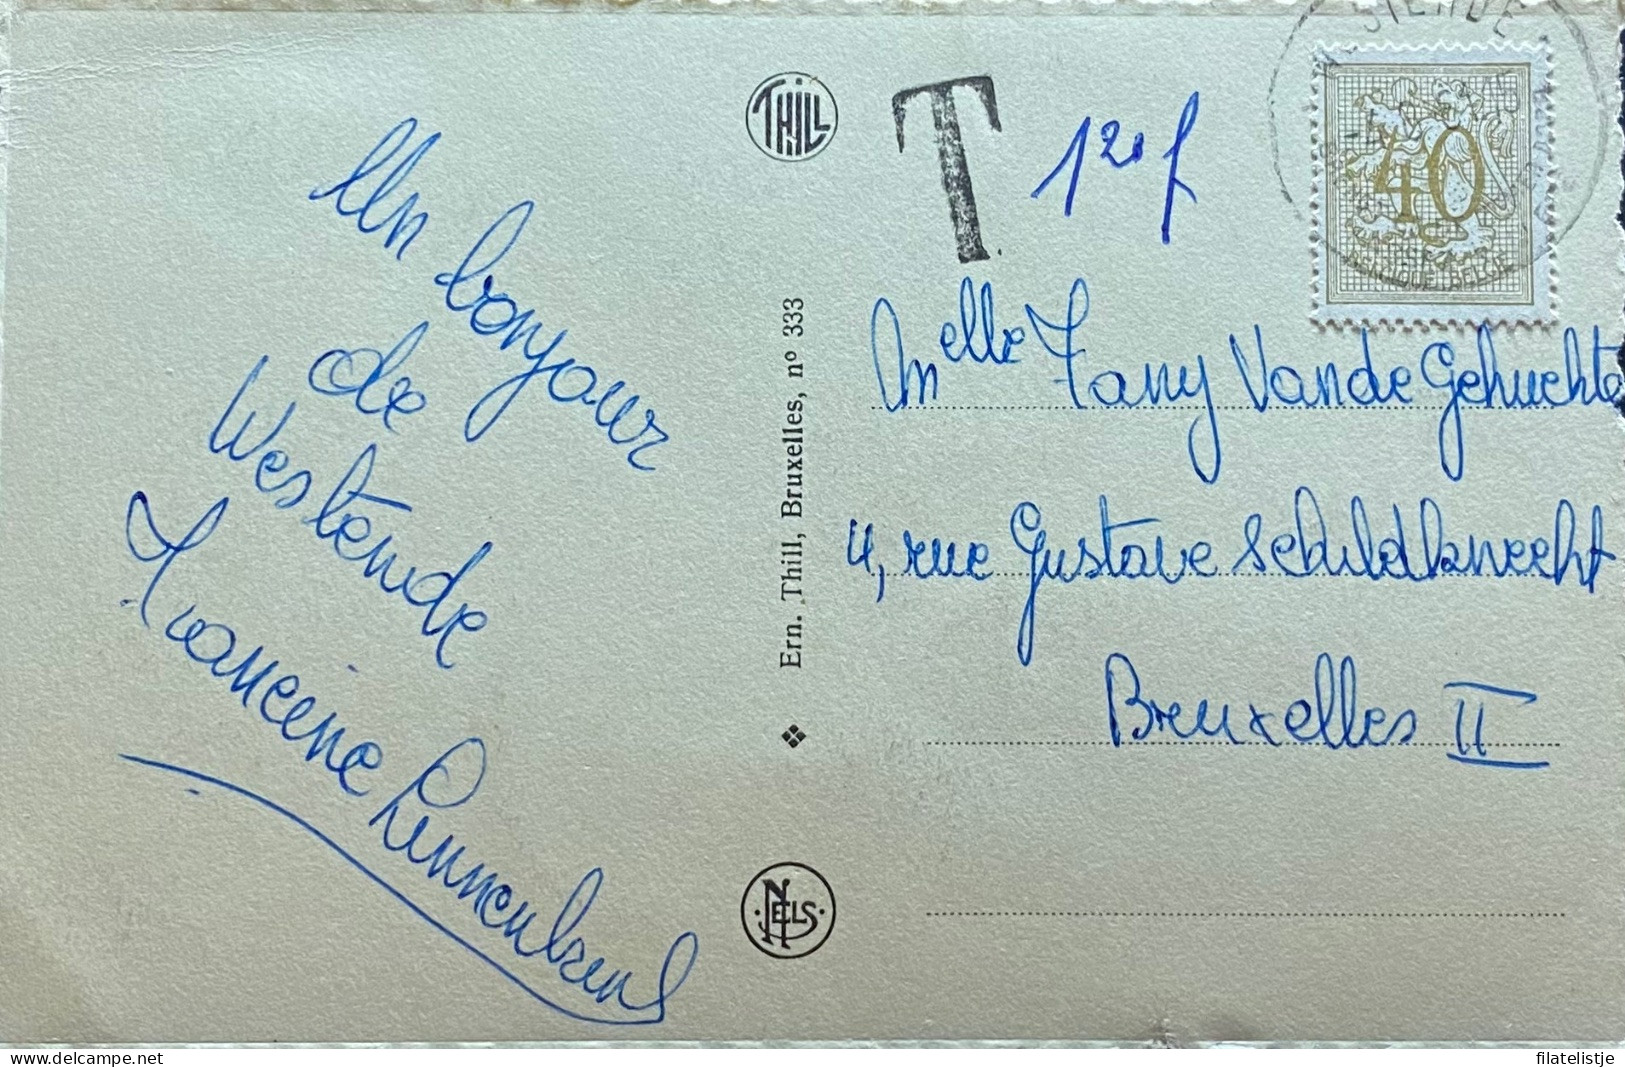 Un bonjour
de
Westende
Francine
THILL
Ern. Thill, Bruxelles, nº 333
NELS
T
1²⁰ f
40
BELGIQUE BELGIE
Melle Fany Vande Gehuchte
4, rue Gustave Schildknecht
Bruxelles II
filatelistje